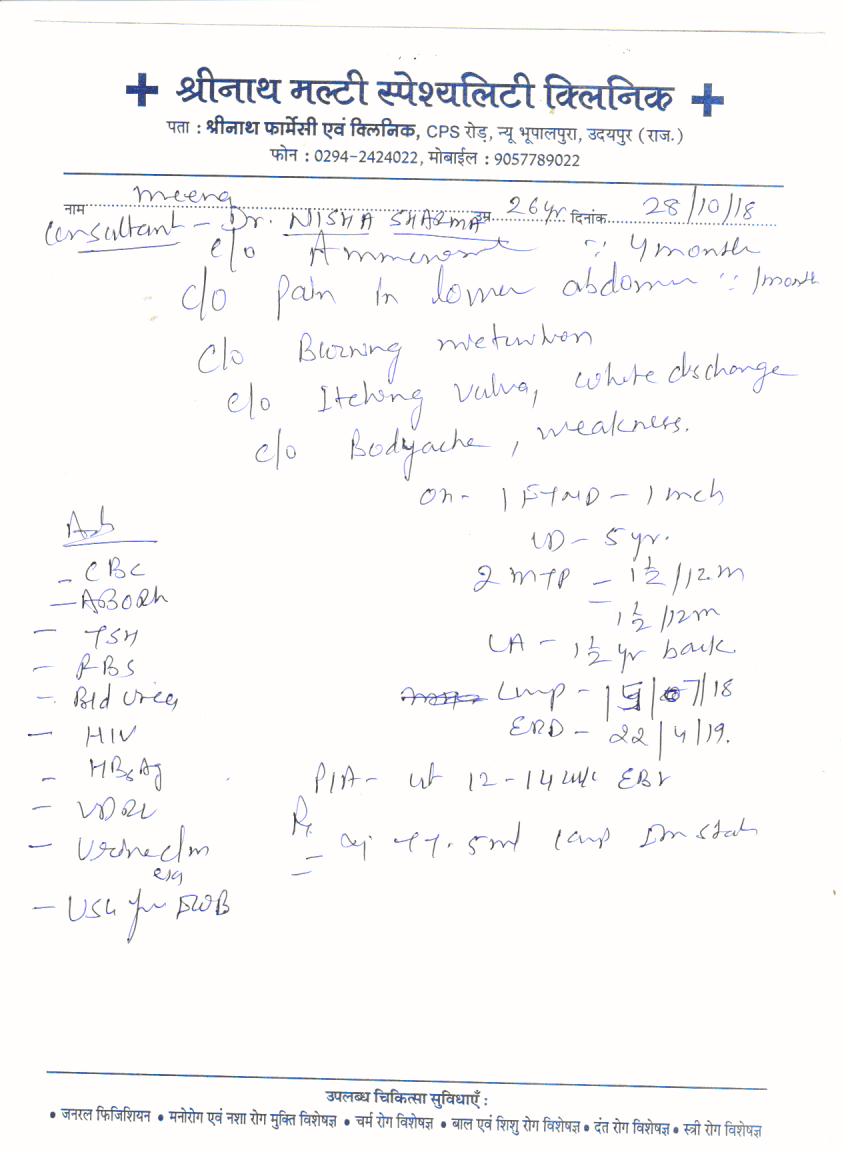 श्रीनाथ मल्टी स्पेश्यलिटी क्लिनिक
पता : श्रीनाथ फार्मेसी एवं क्लिनिक, CPS रोड़, न्यू भूपालपुरा, उदयपुर (राज.)
फोन : 0294-2424022, मोबाईल : 9057789022
नाम meena उम्र 26 yr. दिनांक 28/10/18
Consultant - Dr. NISHA SHARMA
c/o Ammenorr ∵ 4 month
c/o Pain In lower abdomen ∵ 1 month
c/o Burning micturition
c/o Itching valva, white dischange
c/o Bodyache, weakness.
OH - 1 FTND - 1 mch
LD - 5 yr.
2 MTP - 1 1/2 /12 m
- 1 1/2 /12 m
LA - 1 1/2 yr back.
Lmp - 15/07/18
EDD - 22/4/19.
P/A - ut 12-14 wk EBY
Adv
- CBC
- ABORh
- TSH
- RBS
- Bld Urea
- HIV
- HBsAg
- VDRL
- Urine c/m
- USG for FWB
Rx
Inj TT .5ml 1 amp Im Stat
उपलब्ध चिकित्सा सुविधाएँ :
• जनरल फिजिशियन • मनोरोग एवं नशा रोग मुक्ति विशेषज्ञ • चर्म रोग विशेषज्ञ • बाल एवं शिशु रोग विशेषज्ञ • दंत रोग विशेषज्ञ • स्त्री रोग विशेषज्ञ